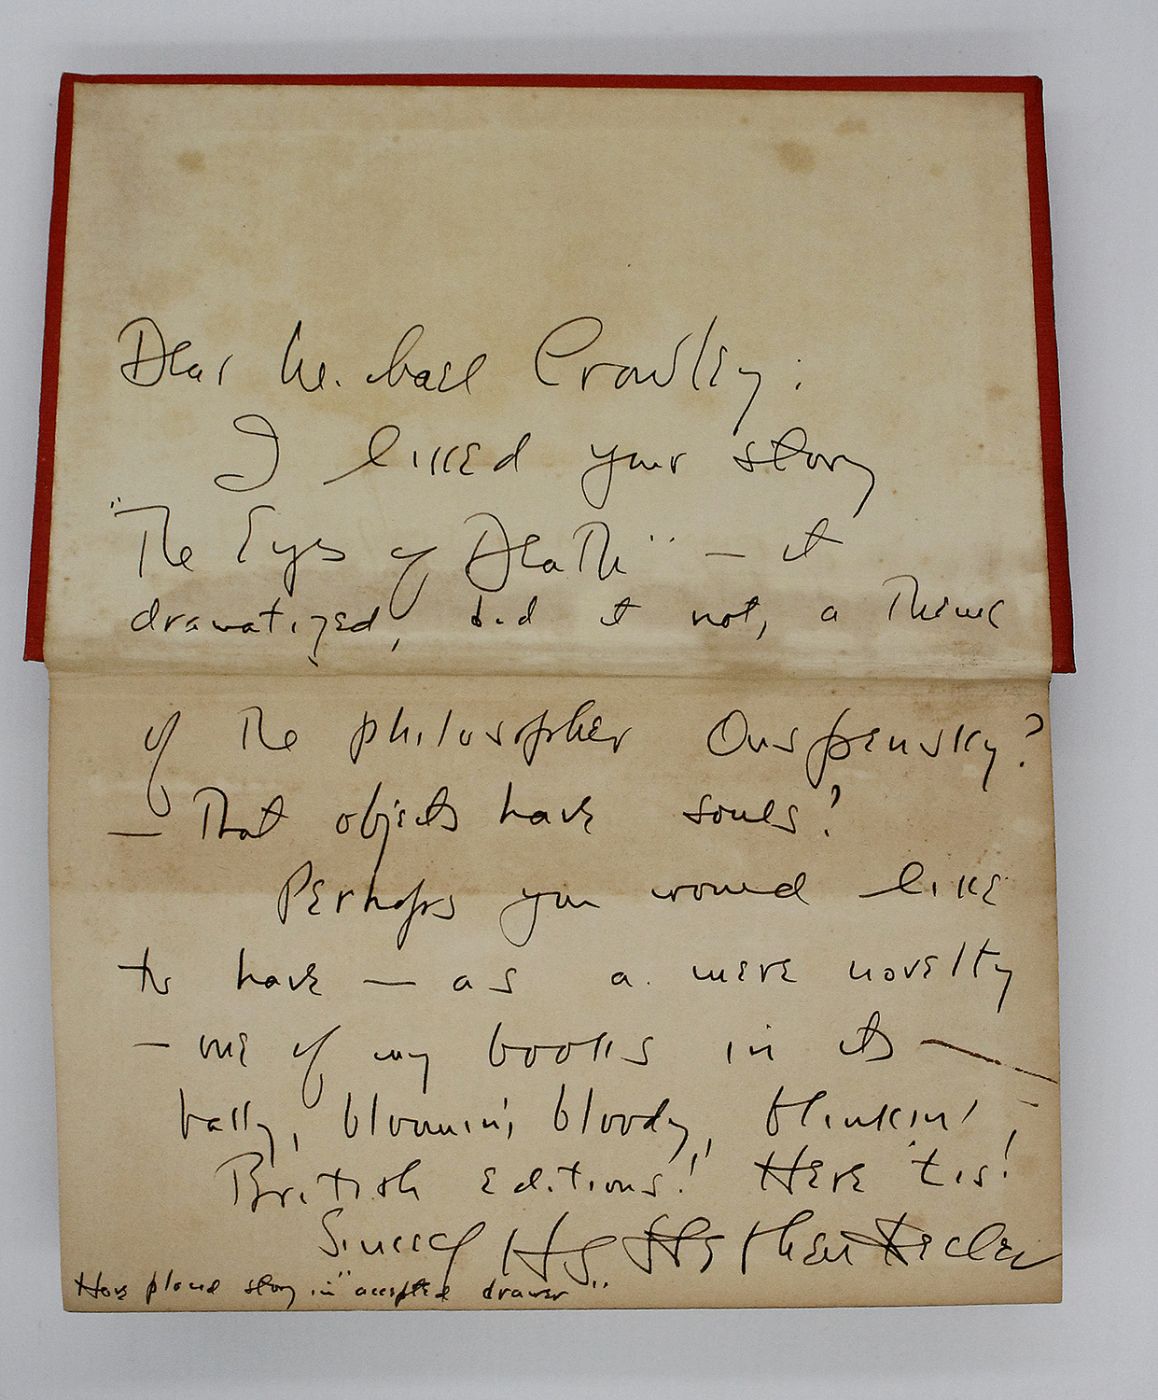 Dear Michael Crowley:
I liked your story
"The Eyes of Death" — it
dramatized, did it not, a Theme
of The philosopher Ouspensky?
— That objects have souls?
Perhaps you would like
to have — as a mere novelty
— one of my books in its —
bally, bloomin', bloody, blinkin',
British editions! Here 'tis!
Harry Stephen Keeler
Have placed story in "accepted drawer"